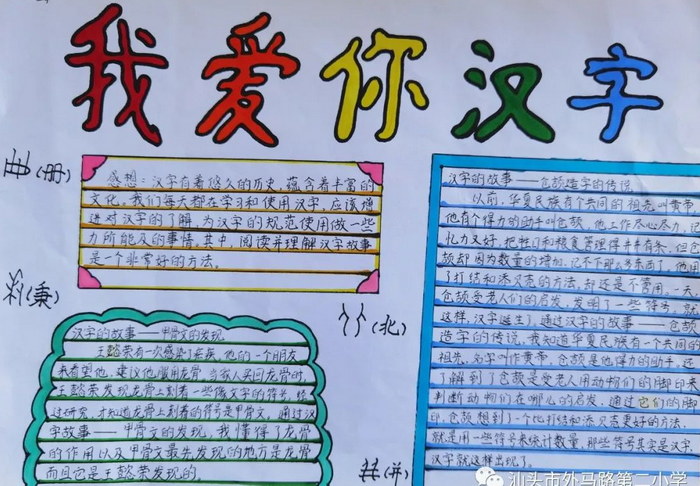 我爱你汉字
(册)
感想：汉字有着悠久的历史，蕴含着丰富的
文化。我们每天都在学习和使用汉字，应该增
进对汉字的了解，为汉字的规范使用做一些
力所能及的事情。其中，阅读并理解汉字故事
是一个非常好的方法。
(秉)
(北)
汉字的故事——甲骨文的发现
王懿荣有一次感染了疾病，他的一个朋友
来看望他，建议他服用龙骨，当家人买回龙骨时，
王懿荣发现龙骨上刻着一些像文字的符号，经
过研究，才知道龙骨上刻着的符号是甲骨文。通过汉
字故事——甲骨文的发现，我懂得了龙骨
的作用以及甲骨文最先发现的地方是龙骨
而且它是王懿荣发现的。
(并)
汉字的故事——仓颉造字的传说
以前，华夏民族有个共同的祖先叫黄帝，
他有个得力的助手叫仓颉，他工作尽心尽力，记
忆力又好，把牲口和粮食管理得井井有条，但仓
颉却因为数量的增加，记不下那么多东西了，他用
了打结和添贝壳的方法，却还是不管用，一天，
仓颉受老人们的启发，发明了一些符号，就
这样，汉字诞生了。通过汉字的故事——仓颉
造字的传说，我知道华夏民族有一个共同的
祖先，名字叫作黄帝，仓颉是他得力的助手，还
了解到了仓颉是受老人用动物们的脚印来
判断动物们在哪儿的启发，通过它们的脚
印，仓颉想到了一个比打结和添贝壳更好的方法，
就是用一些符号来统计数量，那些符号其实是汉字，
汉字就这样出现了。
汕头市外马路第二小学